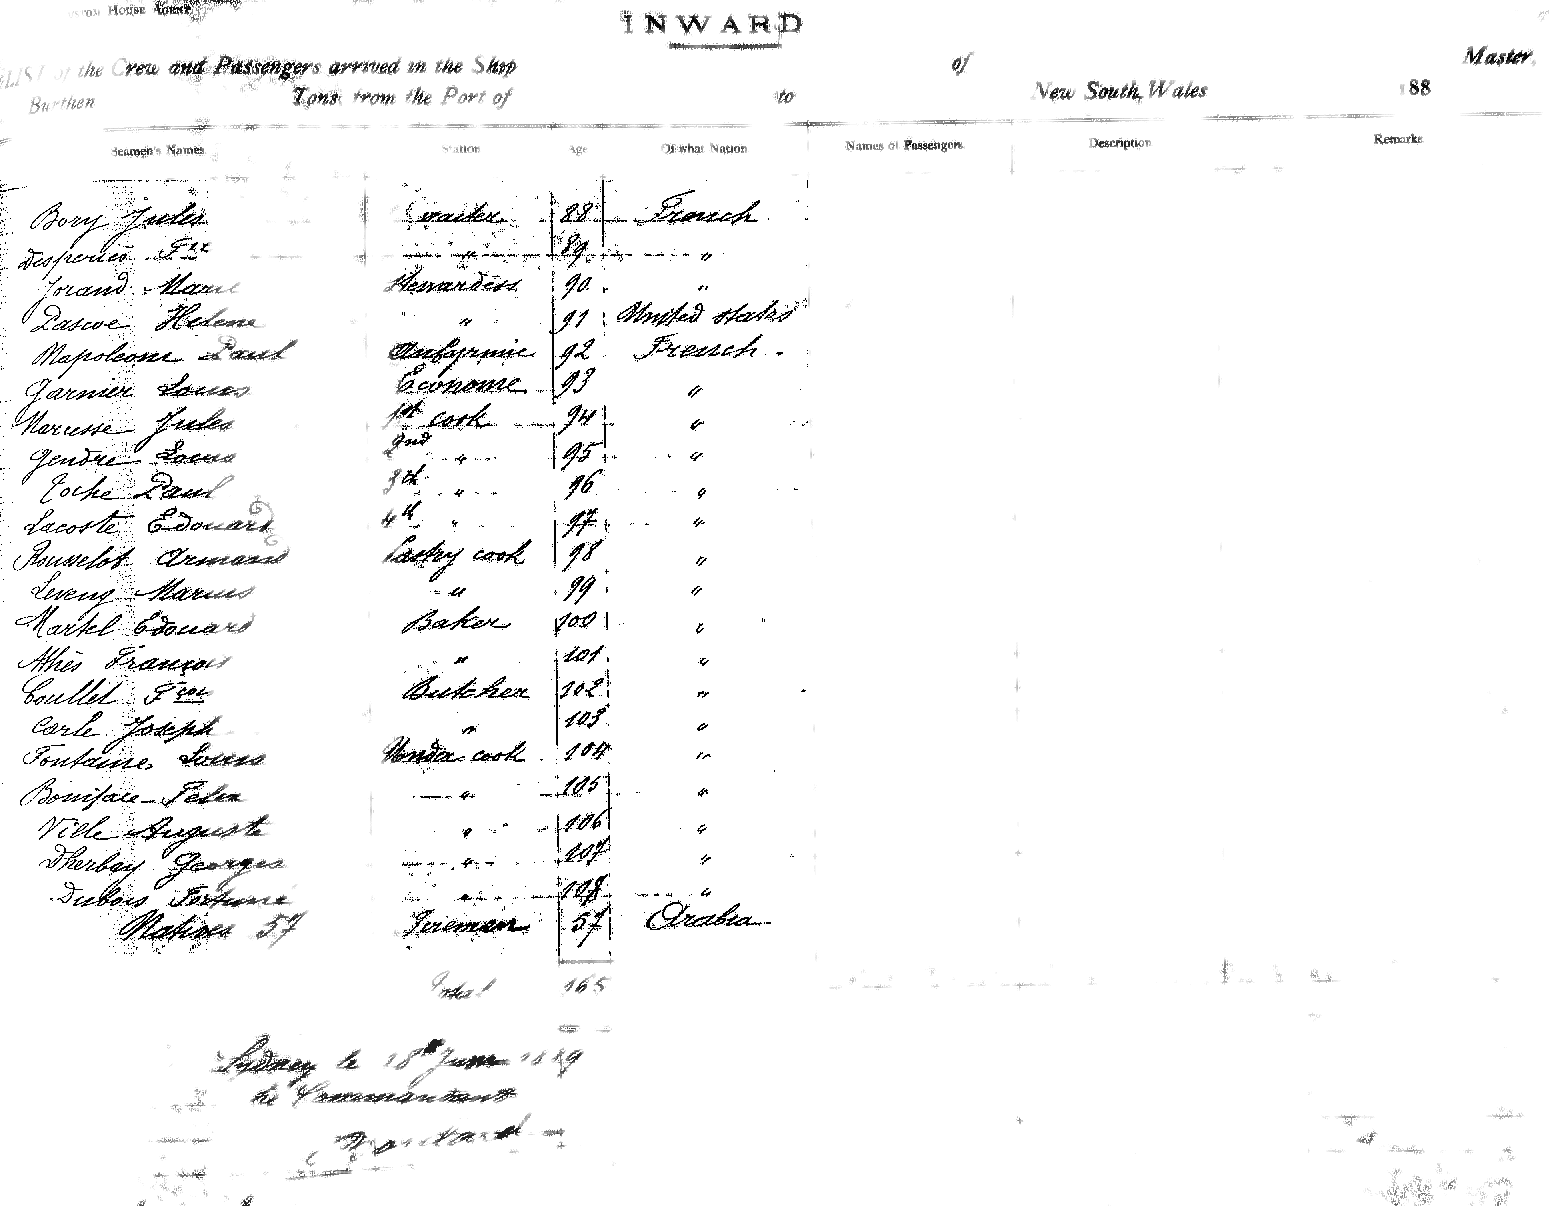 House
INWARD
LIST of the Crew and Passengers arrived in the Ship of Master,
Burthen Tons from the Port of to New South Wales 188
Seamen's Names Station Age Of what Nation Names of Passengers Description Remarks
Bory Jules waiter 88 French
Desperies Fçx " 89 "
Jorand Marie Stewardess 90 "
Pascoe Helene " 91 United states
Napoleoni Paul 92 French
Garnier Louis Econome 93 "
Narcisse Jules 1st cook 94 "
Gendre Louis 2nd " 95 "
Roche Paul 3th " 96 "
Lacoste Edouard 4th " 97 "
Rouvelot Armand Pastry cook 98 "
Leveng Marius " 99 "
Martel Edouard Baker 100 "
Athès François " 101 "
Coullet Fçois Butcher 102 "
Carle Joseph " 103 "
Fontaine Louis cook 104 "
Boniface Felix " 105 "
Ville Auguste " 106 "
Dherbey Georges " 107 "
Dubois Fortuné " 108 "
Natives 57 Fireman 57 Arabia
Total 165
Sydney le 18th June 1889
Le Commandant